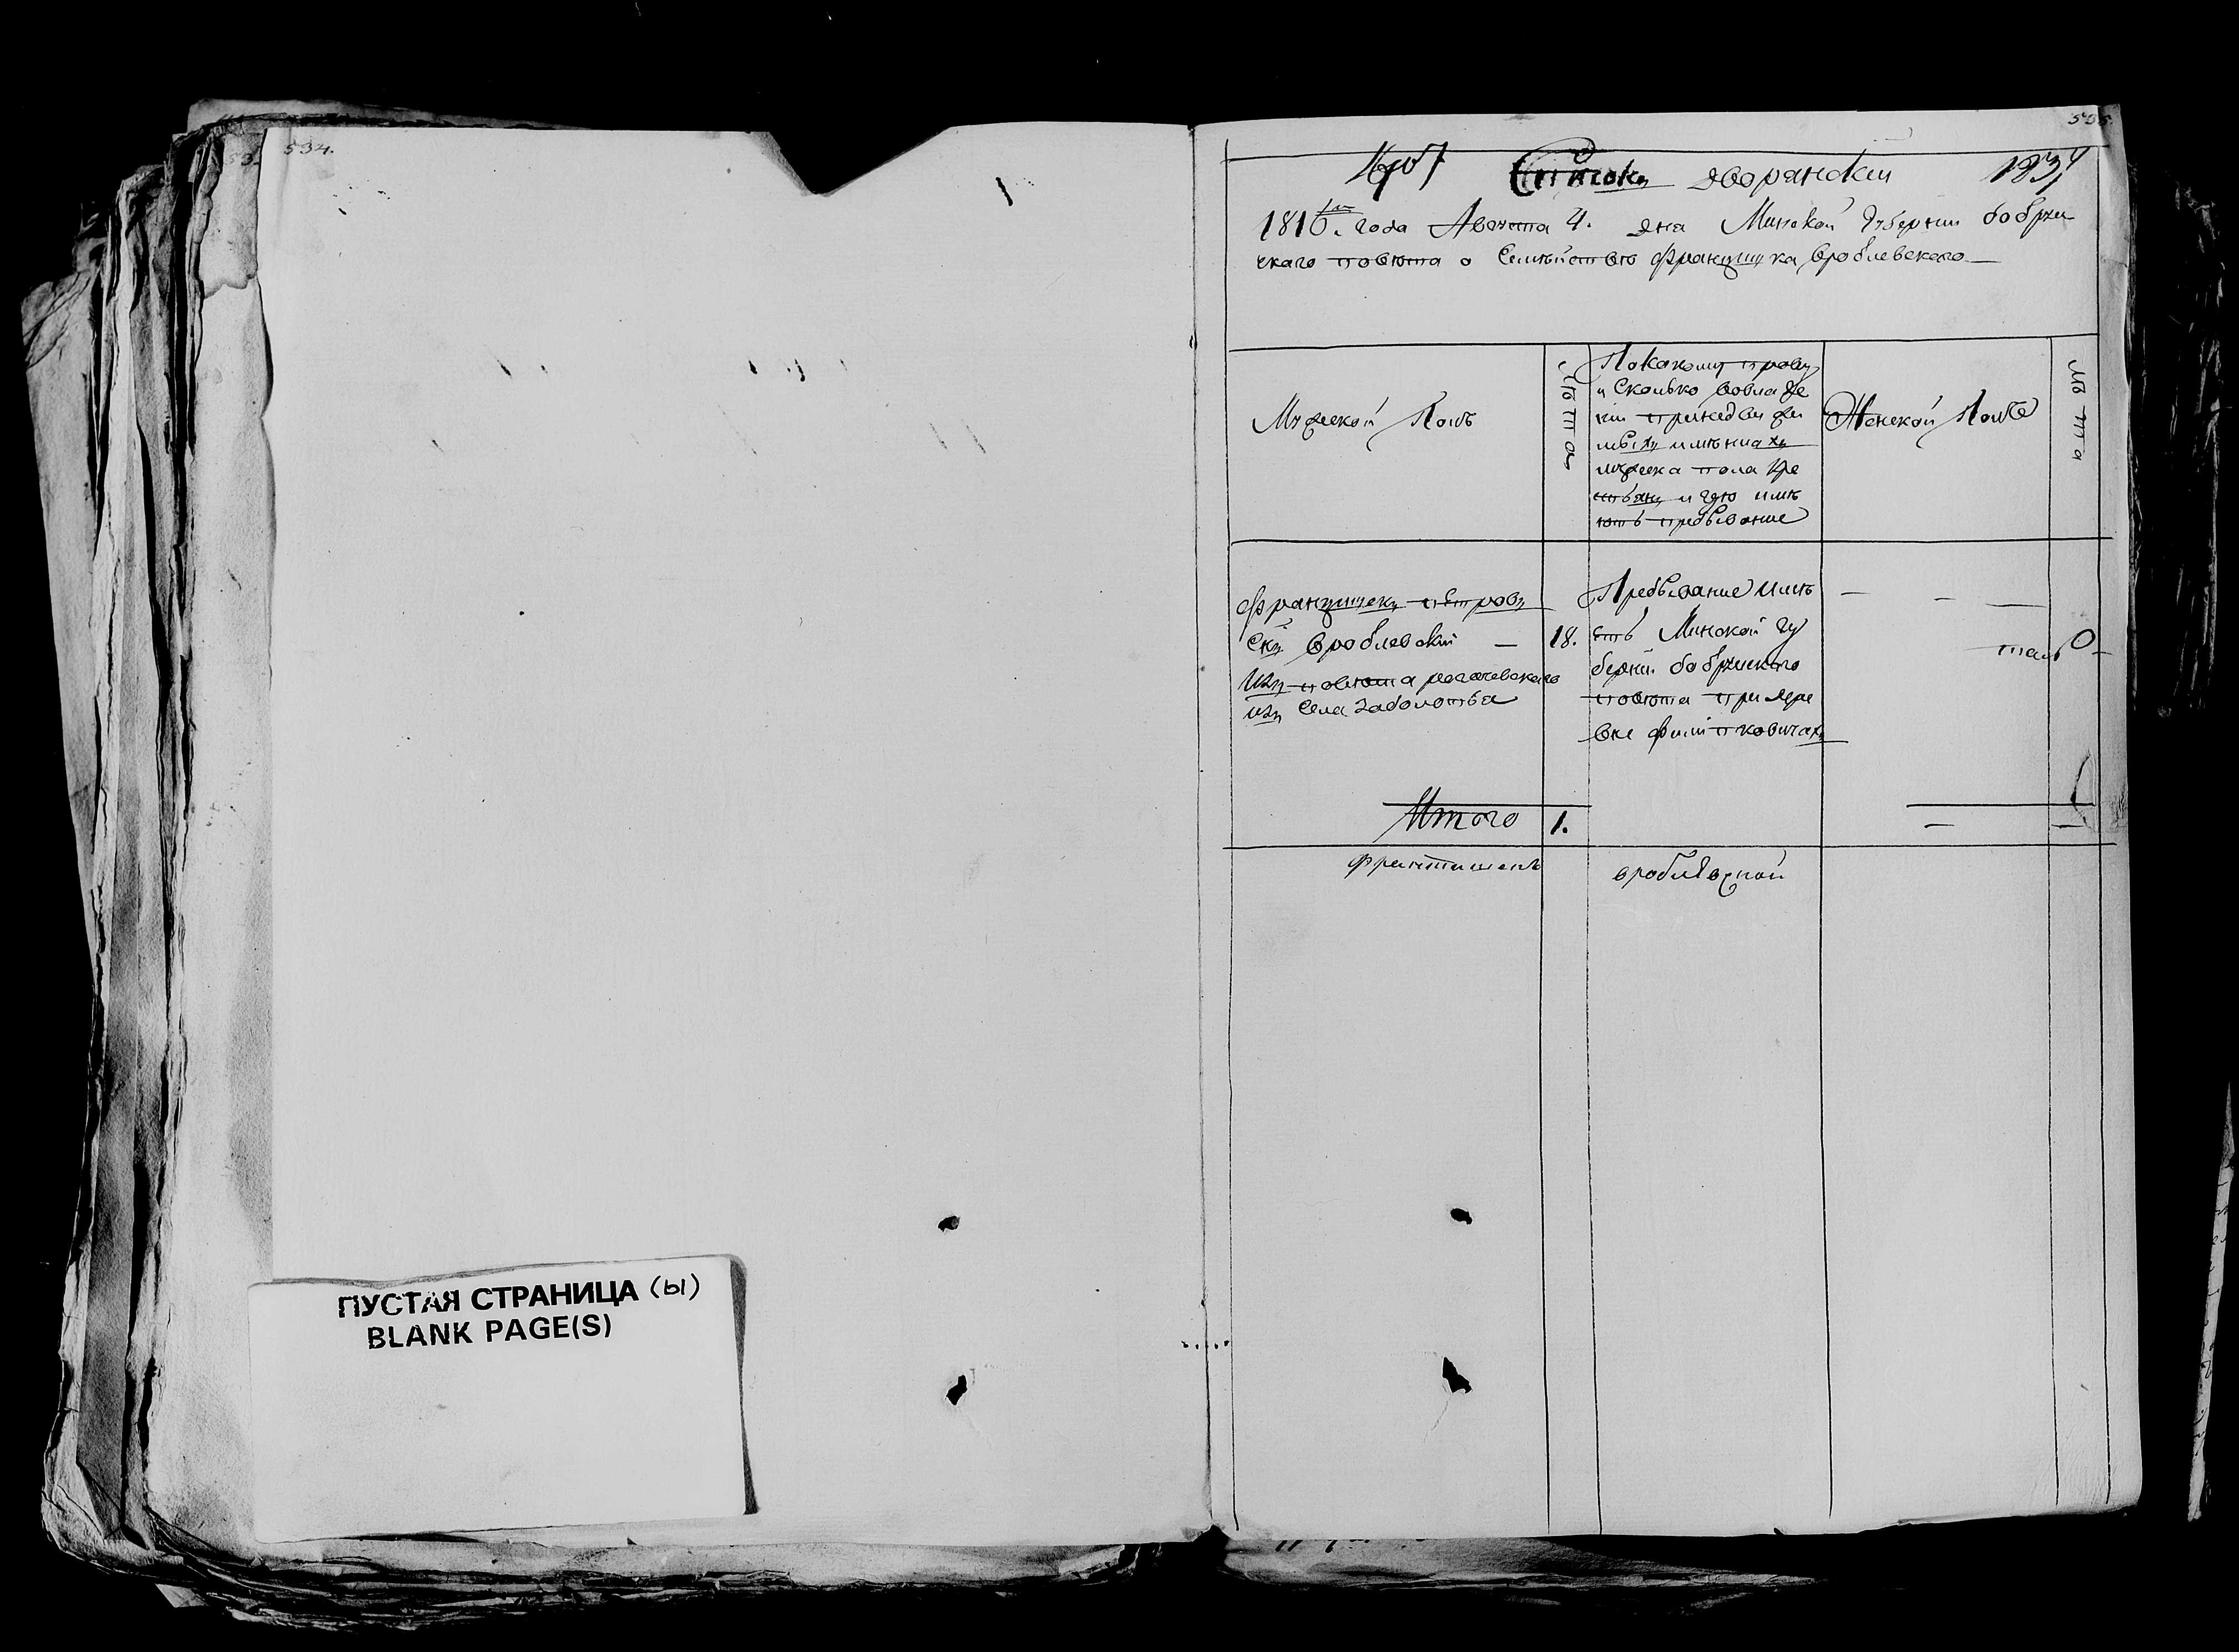 534.
ПУСТАЯ СТРАНИЦА (ы)
BLANK PAGE(S)
535.
Списокъ дворянскій
1816. года Августа 4. дня Минской Губерніи бобруи
скаго повѣта о Семѣйствѣ францишка вроблевского
Мужской Полъ
лѣта
Покакому праву
и Сколько вовладе
ніи
имѣніяхъ
мужска пола Кре
стьянъ и гдѣ имѣ
ютъ пребываніе
Женской Полъ
лѣта
францишекъ петров
скъ вроблевскій — 18.
изъ повѣта рогачевскаго
изъ Села заболотья
Пребываніе имѣ
етъ Минской гу
берніи бобруиского
повѣта при дере
вне филипковичахъ
Итого 1.
францишекъ вроблевской